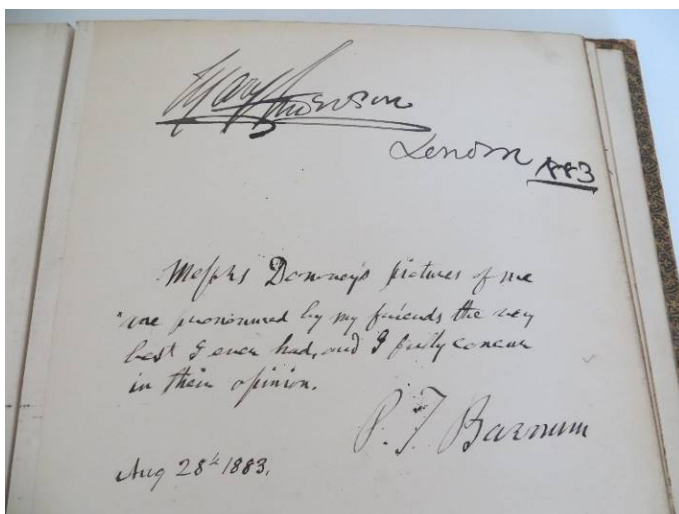 Mary Anderson
London 1883
Messrs Downey's pictures of me
are pronounced by my friends the very
best I ever had, and I fully concur
in their opinion.
P. T. Barnum
Aug 28th 1883.